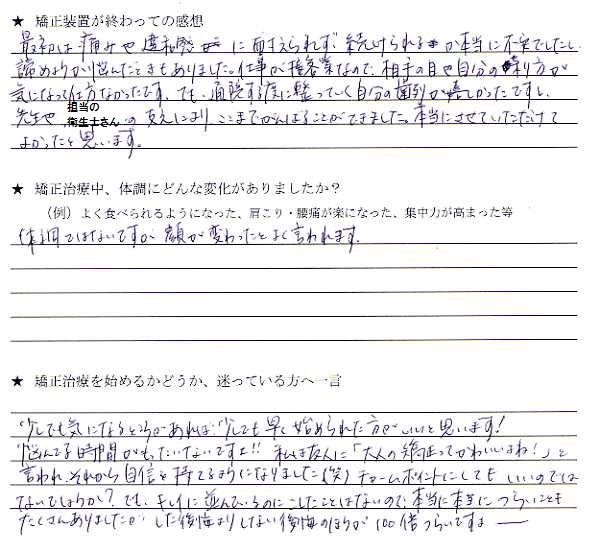 ★ 矯正装置が終わっての感想
最初は痛みや違和感に耐えられず、続けられるか本当に不安でしたし、
諦めようか悩んだときもありました。仕事が接客業なので、相手の目や自分の喋り方が
気になって仕方なかったです。でも、通院する度に整っていく自分の歯列が嬉しかったですし、
先生や担当の衛生士さんの支えにより、ここまでがんばることができました。本当にさせていただけて
よかったと思います。
★ 矯正治療中、体調にどんな変化がありましたか?
(例)よく食べられるようになった、肩こり・腰痛が楽になった、集中力が高まった等
体調ではないですが、顔が変わったとよく言われます。
★ 矯正治療を始めるかどうか、迷っている方へ一言
少しでも気になるところがあれば、少しでも早く始められた方がいいと思います!
悩んでる時間がもったいないですよ!! 私は友人に「大人の矯正ってかわいいよね!」と
言われ、それから自信を持てるようになりました(笑) チャームポイントにしてもいいのでは
ないでしょうか?でも、キレイに並んでいるのにこしたことはないので、本当に本当につらいことも
たくさんありましたが、した後悔よりしない後悔のほうが100倍つらいですよー